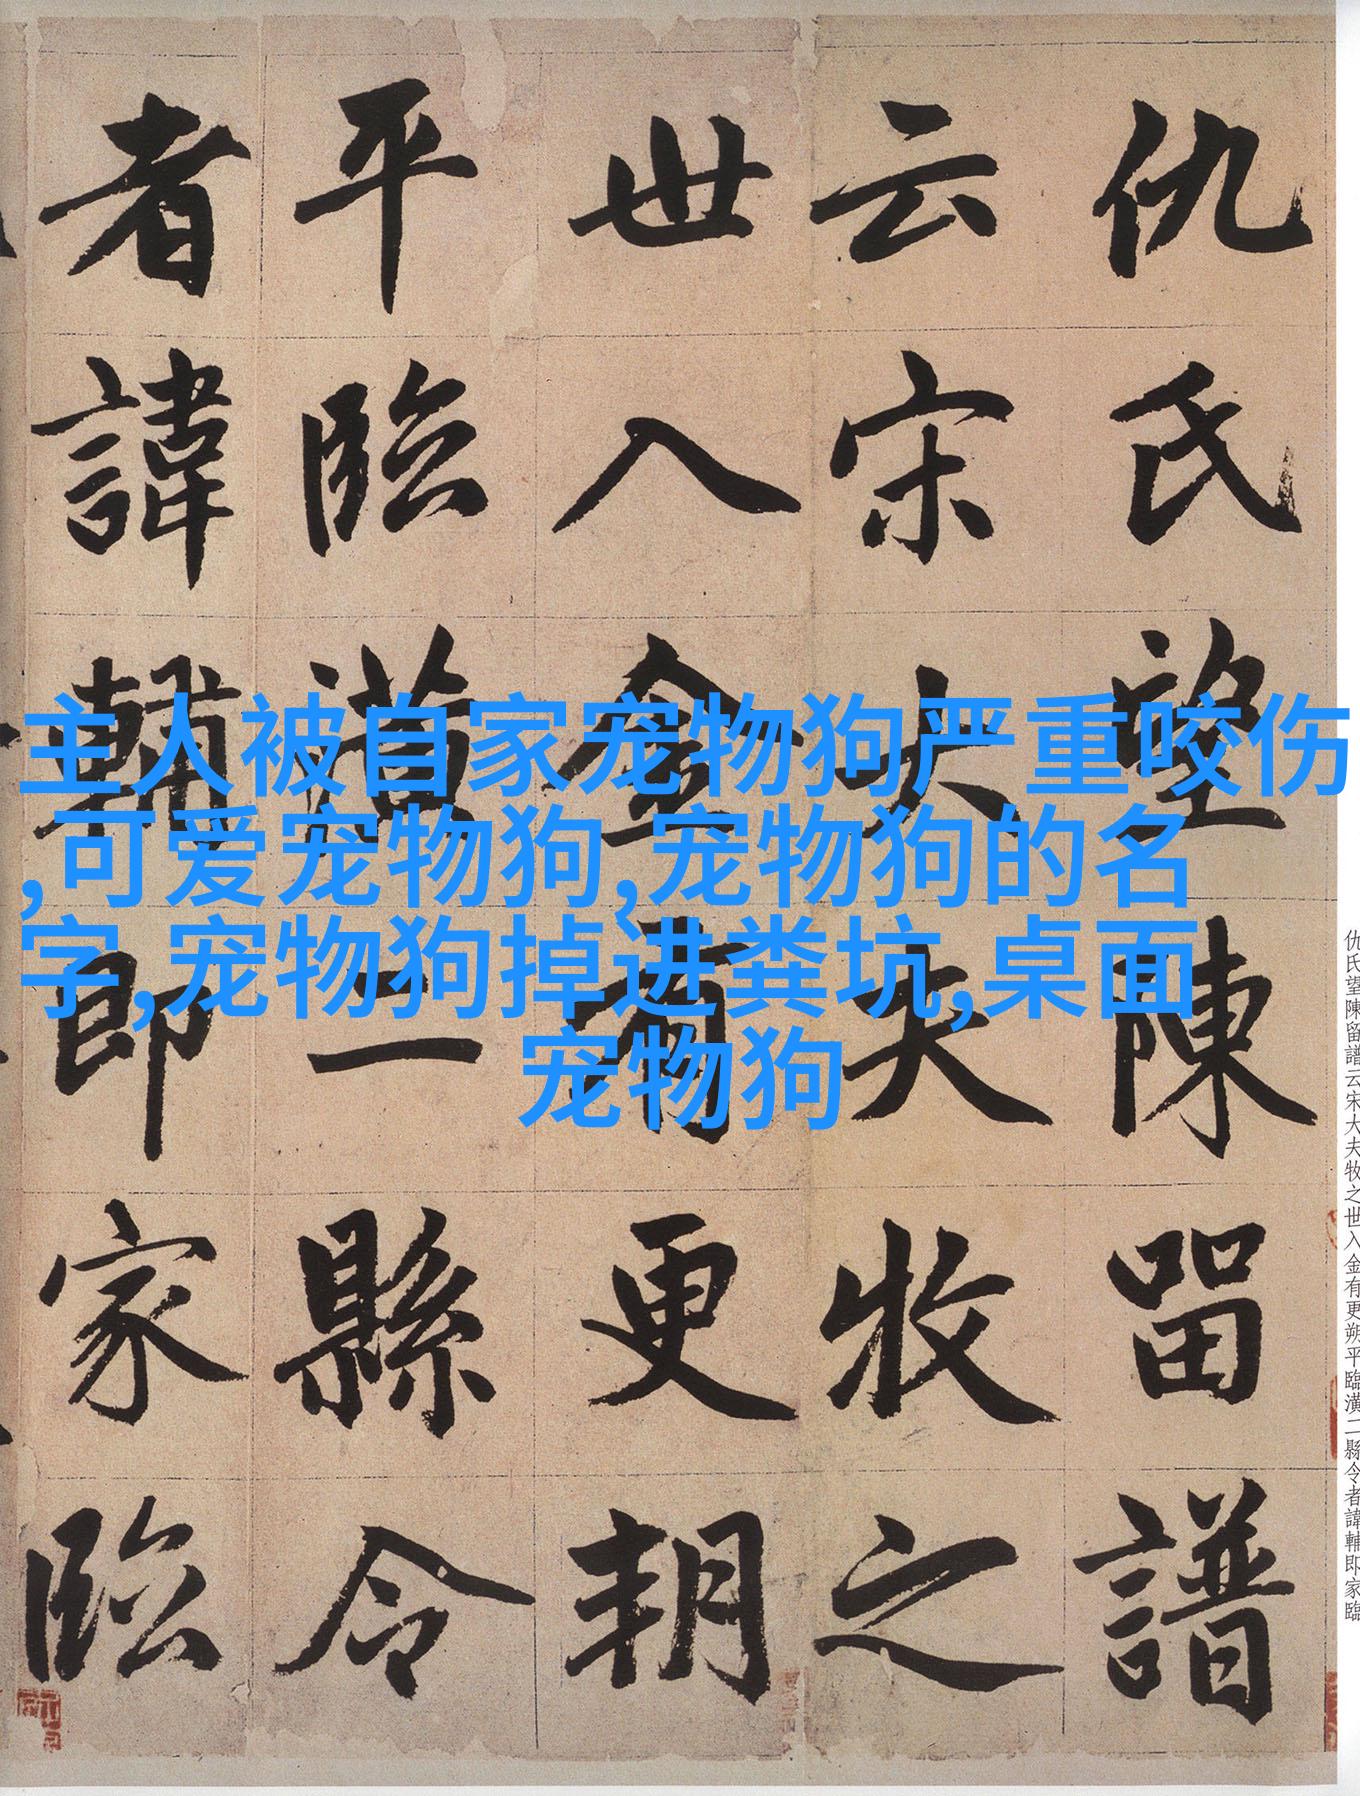 主人被自家宠物狗严重咬伤
,可爱宠物狗,宠物狗的名
字,宠物狗掉进粪坑,桌面
宠物狗
仇氏望陳留譜
云宋大夫牧之
世入金有更朔
平臨潢二縣令
者諱輔即家臨
仇氏望陳留譜云宋大夫牧之世入金有更朔平臨潢二縣令者諱輔即家臨